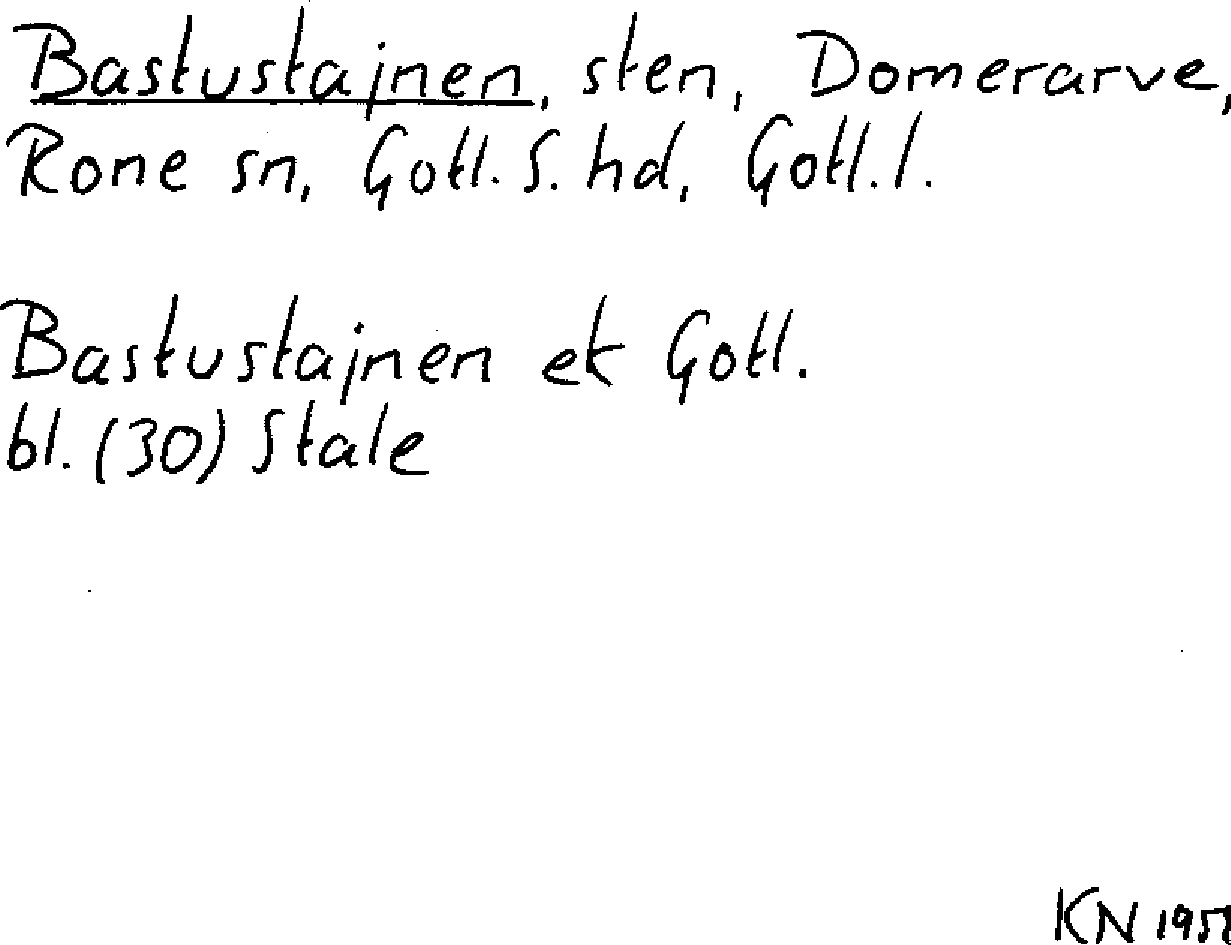 Bastustajnen, sten, Domerarve,
Rone sn, Gotl. S. hd, Gotl. l.
Bastustajnen ek Gotl.
bl. (30) Stale
KN